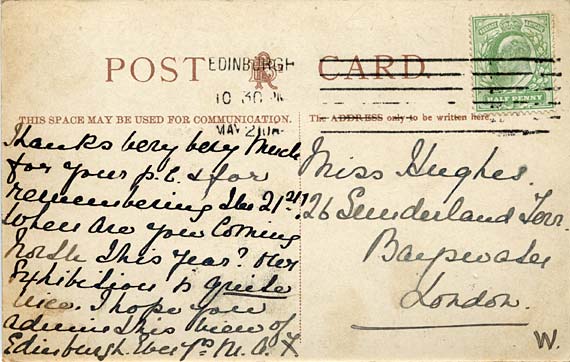 POST CARD
EDINBURGH
10 30
MAY 21
HALF PENNY
THIS SPACE MAY BE USED FOR COMMUNICATION.
The ADDRESS only to be written here.
Thanks very very much
for your p.c. & for
remembering the 21st!
When are you coming
North this year? Our
Exhibition is quite
nice. I hope you
admire this view of
Edinburgh. Ever yrs M.
Miss Hughes.
26 Sunderland Terr.
Bayswater
London.
W.